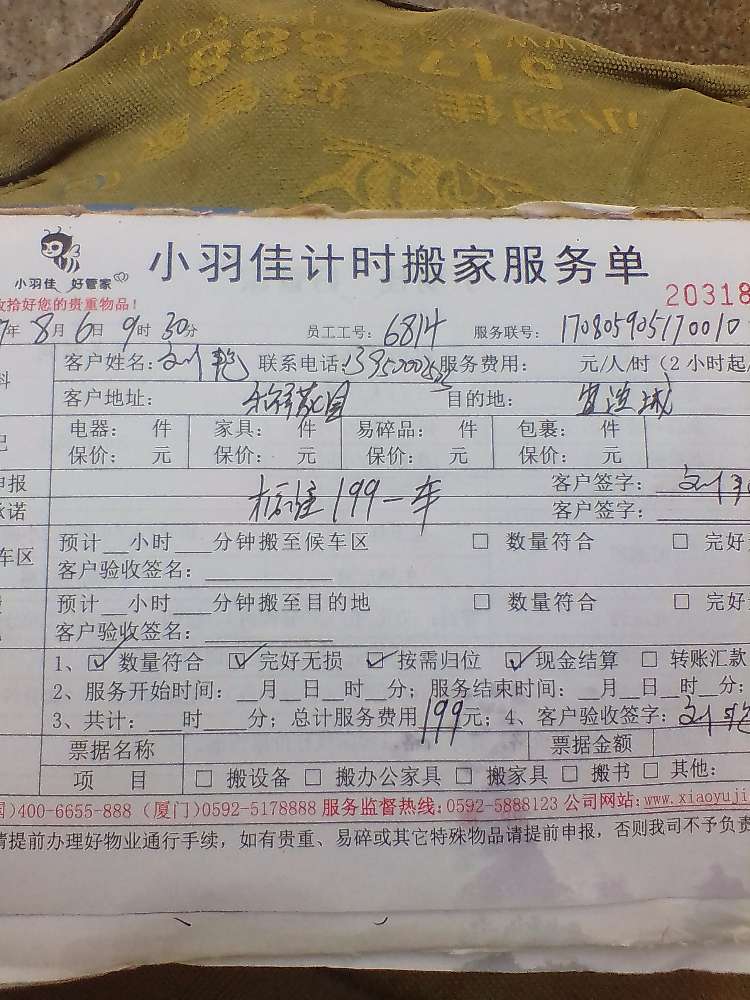 小羽佳计时搬家服务单
小羽佳 好管家
收拾好您的贵重物品！
20318
7年8月6日9时30分 员工工号：6814 服务联号：170805905170010
客户姓名：刘艳 联系电话： 服务费用： 元/人/时（2小时起/
客户地址： 目的地：
电器： 件 家具： 件 易碎品： 件 包裹： 件
保价： 元 保价： 元 保价： 元 保价： 元
申报 客户签字：
标准199一车
承诺 客户签字：
车区 预计__小时___分钟搬至候车区 □ 数量符合 □ 完好
客户验收签名：
预计__小时___分钟搬至目的地 □ 数量符合 □ 完好
客户验收签名：
1、☑数量符合 ☑完好无损 ☑按需归位 ☑现金结算 □ 转账汇款
2、服务开始时间：__月__日__时__分；服务结束时间：__月__日__时__分；
3、共计：___时___分；总计服务费用199元；4、客户验收签字：刘艳
票据名称 票据金额
项 目 □ 搬设备 □ 搬办公家具 □ 搬家具 □ 搬书 □ 其他：
)400-6655-888 (厦门)0592-5178888 服务监督热线:0592-5888123 公司网站:www.xiaoyuji
请提前办理好物业通行手续，如有贵重、易碎或其它特殊物品请提前申报，否则我司不予负责